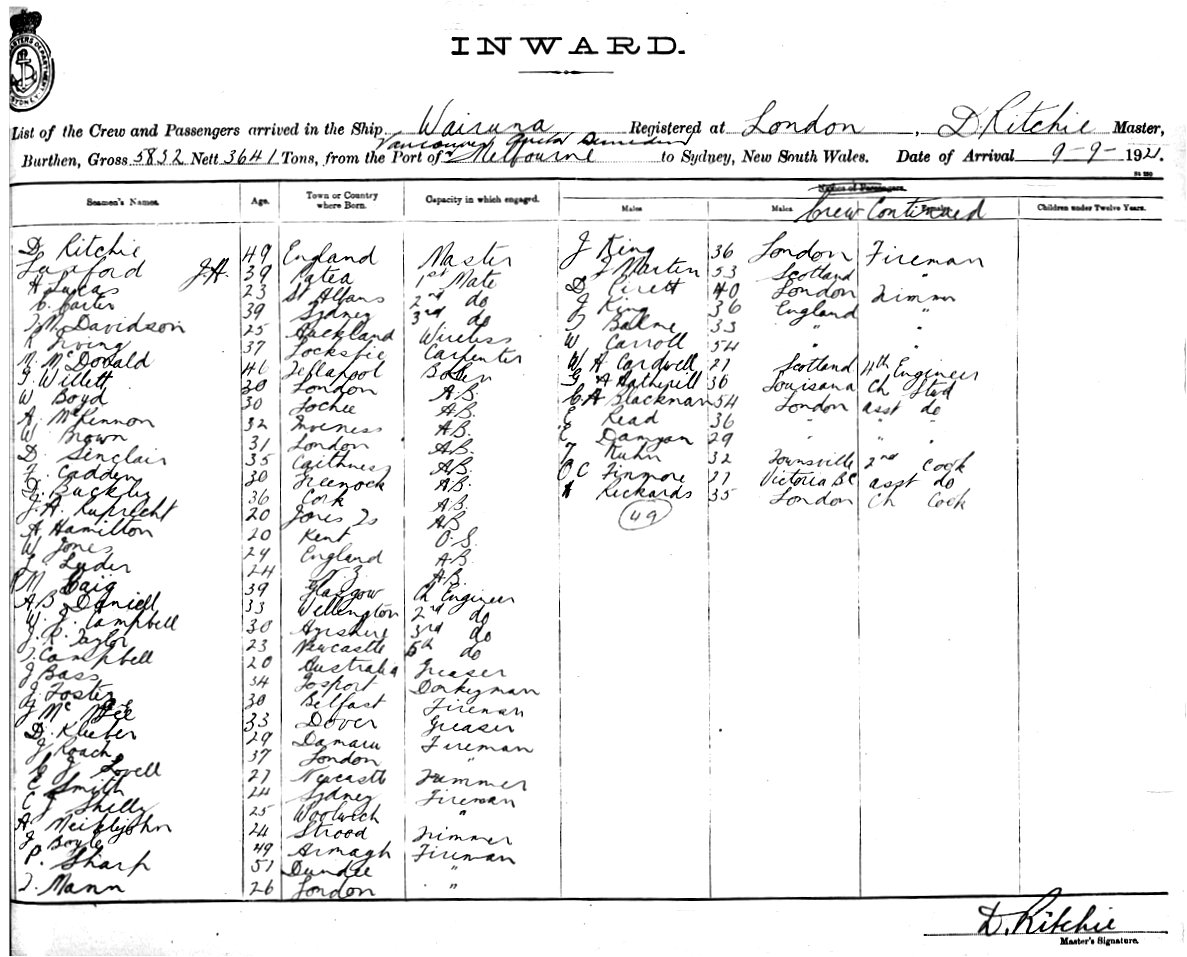 INWARD.
List of the Crew and Passengers arrived in the Ship Wairuna Registered at London, D Ritchie Master,
Vancouver
Burthen, Gross 5832 Nett 3641 Tons, from the Port of Melbourne to Sydney, New South Wales. Date of Arrival 9-9-1921.
Names of Passengers.
Seamen's Names. Age. Town or Country where Born. Capacity in which engaged. Males Males Females Children under Twelve Years.
Crew Continued
D Ritchie 49 England Master J King 36 London Fireman
J.H. 39 Patea 1st Mate J Martin 53 Scotland "
A Lucas 23 St Albans 2nd do D 40 London Trimmer
C. Carter 39 Sydney 3rd do J King 36 England "
J. M. Davidson 25 Auckland Wireless 33 " "
R Irving 37 Carpenter W Carroll 54 " "
N McDonald 46 W A Cardwell 27 Scotland 4th Engineer
G Willett 30 London A.B. G A 36 Louisana Ch Stwd
W Boyd 30 Lochee A.B. C A Blackman 54 London asst do
A. McKennon 32 Inverness A.B. E Read 36 " "
W. Brown 31 London A.B. E 29 " "
D. Sinclair 35 Caithness A.B. F Kuhn 32 Townsville 2nd Cook
F. Cadden 30 Greenock A.B. O C Finmore 27 Victoria BC asst do
T. Buckley 36 Cork A.B. A Rickards 35 London Ch Cook
J. A. Ruprecht 20 A.B. 49
A Hamilton 20 Kent O.S.
W Jones 29 England A.B.
L. Luder 24 N.Z. A.B.
39 Glasgow Ch Engineer
A B Daniell 33 Wellington 2nd do
W. J. Campbell 30 Ayrshire 3rd do
J. R. Taylor 23 Newcastle 5th do
T. Campbell 20 Australia Greaser
J Bass 34 Gosport Donkeyman
J. Foster 30 Belfast Fireman
J Mc 33 Dover Greaser
D. Klieber 29 Oamaru Fireman
J Roach 37 London "
C J Lovell 27 Newcastle Trimmer
E Smith 24 Sydney Fireman
C J Shelly 25 Woolwich "
A. Meiklejohn 24 Strood Trimmer
J Boyle 49 Armagh Fireman
P. Sharp 51 Dundee "
T. Mann 26 London "
D. Ritchie
Master's Signature.